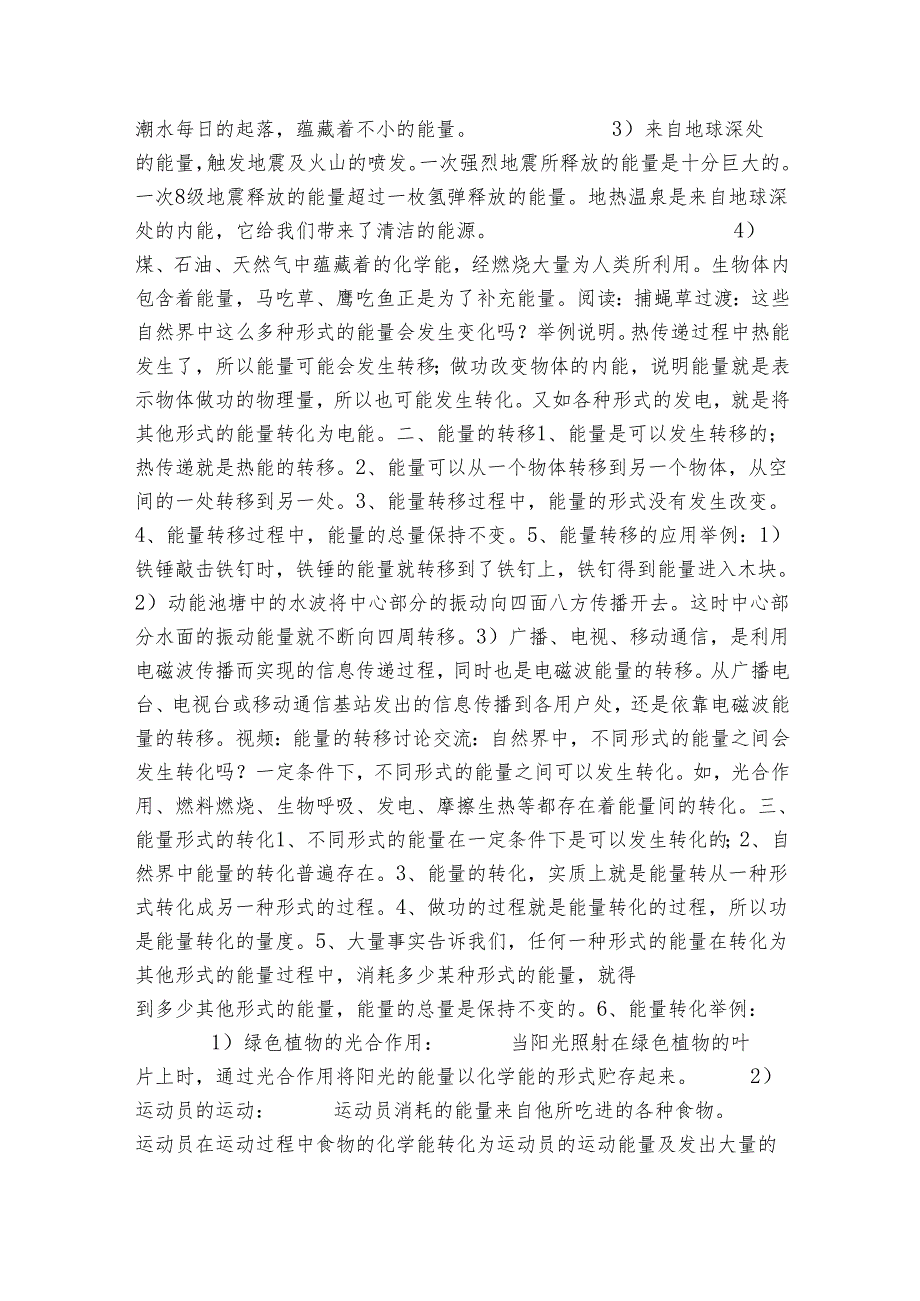 潮水每日的起落，蕴藏着不小的能量。 3）来自地球深处
的能量，触发地震及火山的喷发。一次强烈地震所释放的能量是十分巨大的。
一次8级地震释放的能量超过一枚氢弹释放的能量。地热温泉是来自地球深
处的内能，它给我们带来了清洁的能源。 4）
煤、石油、天然气中蕴藏着的化学能，经燃烧大量为人类所利用。生物体内
包含着能量，马吃草、鹰吃鱼正是为了补充能量。阅读：捕蝇草过渡：这些
自然界中这么多种形式的能量会发生变化吗？举例说明。热传递过程中热能
发生了，所以能量可能会发生转移；做功改变物体的内能，说明能量就是表
示物体做功的物理量，所以也可能发生转化。又如各种形式的发电，就是将
其他形式的能量转化为电能。二、能量的转移1、能量是可以发生转移的；
热传递就是热能的转移。2、能量可以从一个物体转移到另一个物体，从空
间的一处转移到另一处。3、能量转移过程中，能量的形式没有发生改变。
4、能量转移过程中，能量的总量保持不变。5、能量转移的应用举例：1）
铁锤敲击铁钉时，铁锤的能量就转移到了铁钉上，铁钉得到能量进入木块。
2）动能池塘中的水波将中心部分的振动向四面八方传播开去。这时中心部
分水面的振动能量就不断向四周转移。3）广播、电视、移动通信，是利用
电磁波传播而实现的信息传递过程，同时也是电磁波能量的转移。从广播电
台、电视台或移动通信基站发出的信息传播到各用户处，还是依靠电磁波能
量的转移。视频：能量的转移讨论交流：自然界中，不同形式的能量之间会
发生转化吗？一定条件下，不同形式的能量之间可以发生转化。如，光合作
用、燃料燃烧、生物呼吸、发电、摩擦生热等都存在着能量间的转化。三、
能量形式的转化1、不同形式的能量在一定条件下是可以发生转化的；2、自
然界中能量的转化普遍存在。3、能量的转化，实质上就是能量转从一种形
式转化成另一种形式的过程。4、做功的过程就是能量转化的过程，所以功
是能量转化的量度。5、大量事实告诉我们，任何一种形式的能量在转化为
其他形式的能量过程中，消耗多少某种形式的能量，就得
到多少其他形式的能量，能量的总量是保持不变的。6、能量转化举例：
1）绿色植物的光合作用： 当阳光照射在绿色植物的叶
片上时，通过光合作用将阳光的能量以化学能的形式贮存起来。 2）
运动员的运动： 运动员消耗的能量来自他所吃进的各种食物。
运动员在运动过程中食物的化学能转化为运动员的运动能量及发出大量的